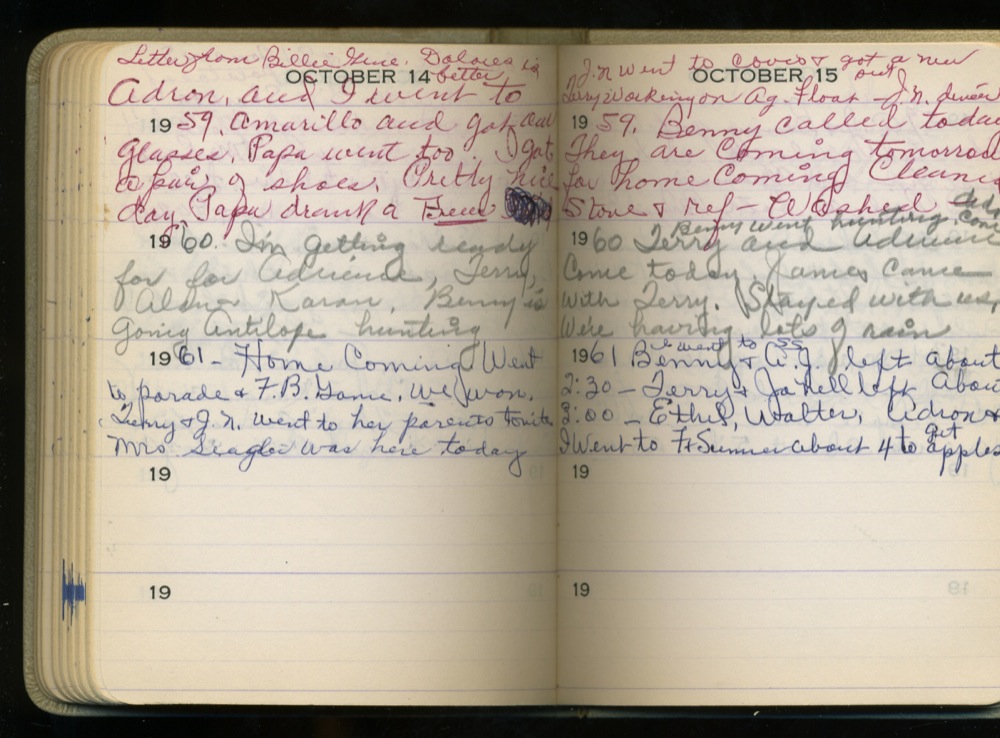 Letter from Billie Gene. Dolores is
better
OCTOBER 14
Adron, and I went to
19 59. Amarillo and got our
glasses. Papa went too. I got
a pair of shoes. Pretty nice
day. Papa drank a
19 60. I'm getting ready
for for Adriene, Terry,
Karan. Benny is
Going Antilope hunting
19 61 - Home Coming Went
to parade & F.B. Game. We won.
Terry & J.N. went to her parents tonite
Mrs Seagler was here today
19
19
J.N went to Clovis & got a new
OCTOBER 15
Terry Working on Ag. Float - J.N.
19 59. Benny called today
They are Coming tomorrow
for home Coming Cleaned
Stove & ref - Washed
Benny went hunting
19 60 Terry and Adriene
Come today. James came
with Terry. Stayed with us,
We're having lots of rain
I went to SS
19 61 Benny & A.J. left about
2:30 - Terry & Ja Nell left About
3:00 - Ethel, Walter, Adron &
I Went to Ft Sumner about 4 to get
apples
19
19